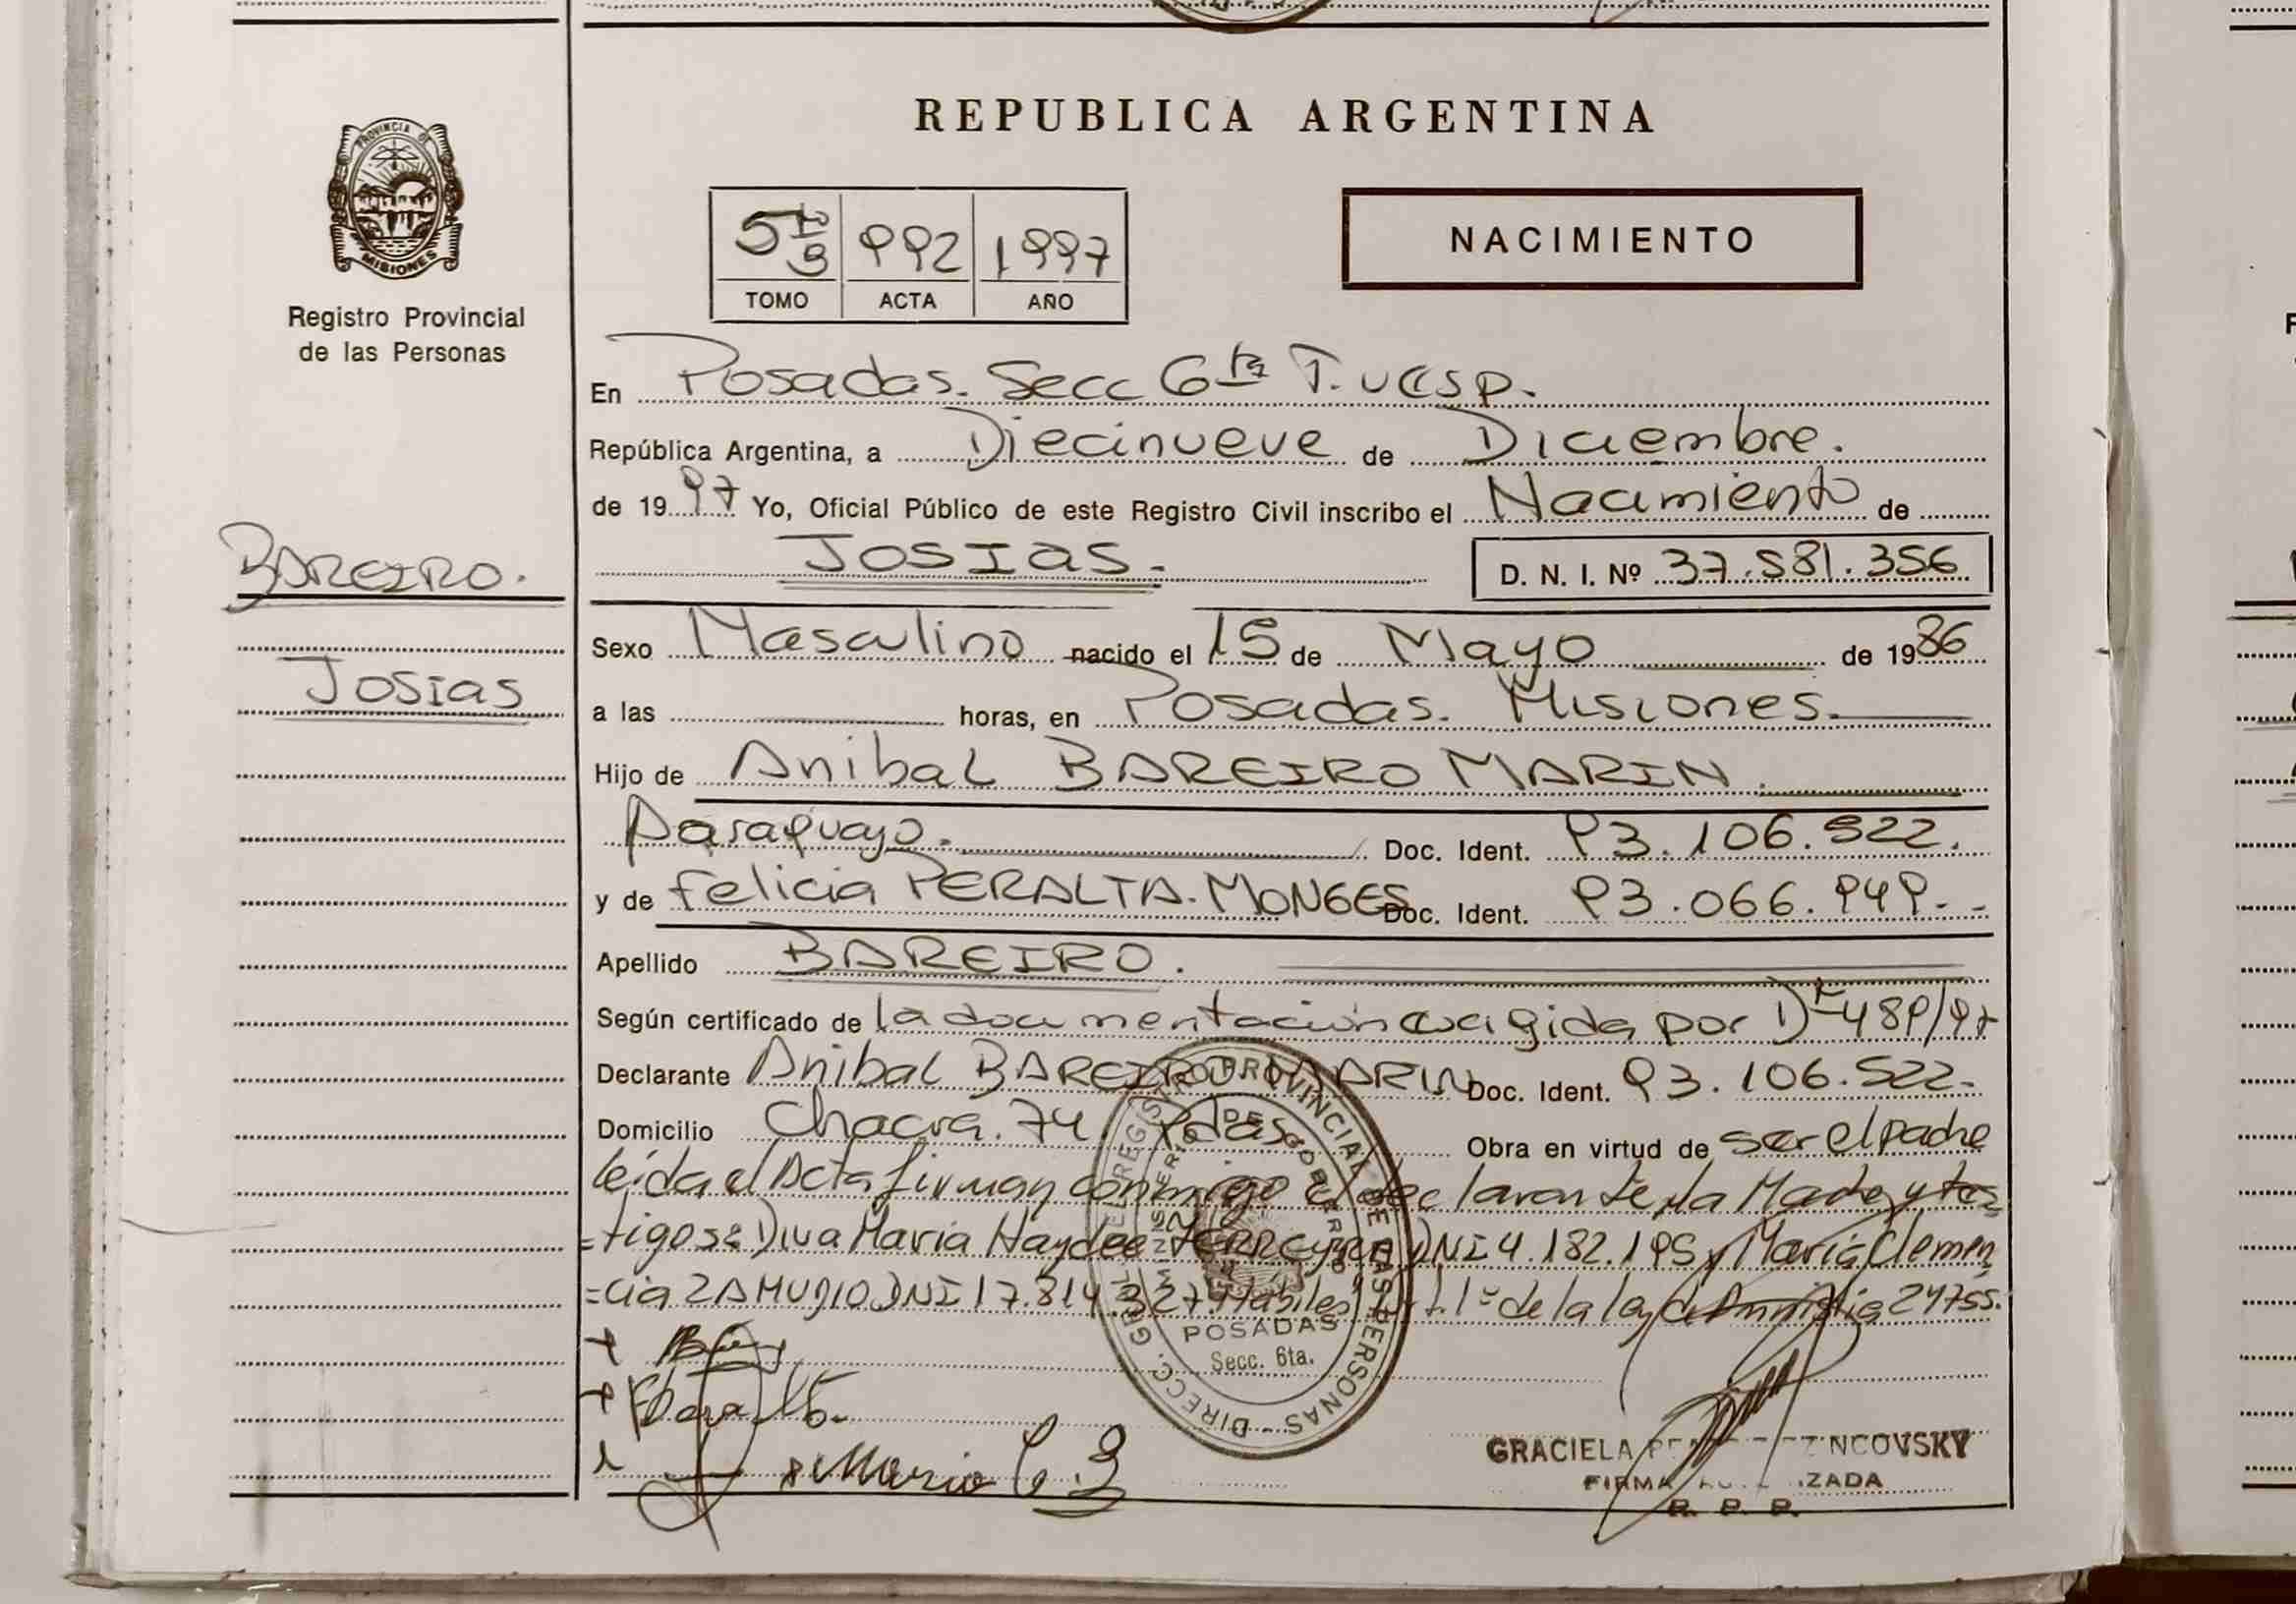 PROVINCIA DE
MISIONES
Registro Provincial
de las Personas
BAREIRO.
Josias
REPUBLICA ARGENTINA
5to 3 992 1997
TOMO ACTA AÑO
NACIMIENTO
En Posadas. Secc 6ta T. vesp.
República Argentina, a Diecinueve de Diciembre.
de 1997 Yo, Oficial Público de este Registro Civil inscribo el Nacimiento de
JOSIAS. D. N. I. Nº 37.581.356
Sexo Masculino nacido el 15 de Mayo de 1986
a las horas, en Posadas. Misiones.
Hijo de Anibal BAREIRO MARIN.
Paraguayo. Doc. Ident. 93.106.522.
y de Felicia PERALTA. MONGES Doc. Ident. 93.066.949.-
Apellido BAREIRO.
Según certificado de la documentación exigida por Dt 489/97
Declarante Anibal BAREIRO MARIN Doc. Ident. 93.106.522-
Domicilio Chacra. 74 Pdas. Obra en virtud de ser el padre
leida el Acta firman conmigo el declarante, la Madre y tes
=tigos: Diva Maria Haydee FERREYRA DNI 4.182.195 y Maria Clemen
=cia ZAMUDIO DNI 17.814.327. Habiles. Art. 1º de la ley de Amnistia 24755.
Peralta
Maria C. Z
DIRECC. GRAL. DEL REGISTRO PROVINCIAL DE LAS PERSONAS
MINISTERIO DE GOBIERNO
POSADAS
Secc. 6ta.
GRACIELA NCOVSKY
FIRMA AUTORIZADA
R. P. P.